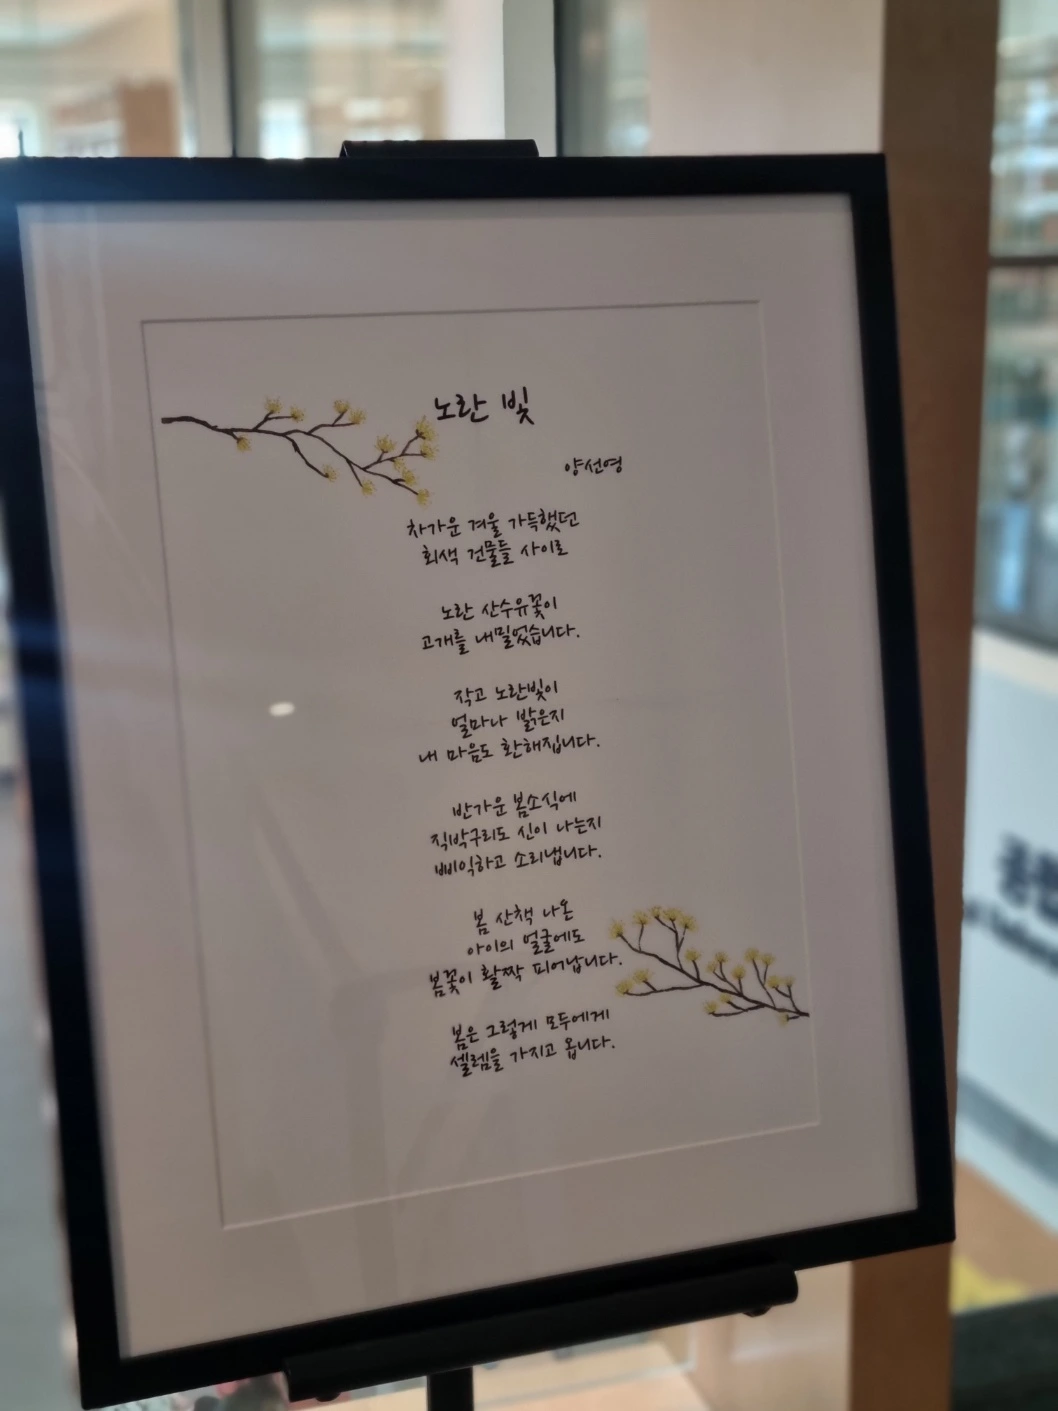 노란 빛
양선영
차가운 겨울 가득했던
회색 건물들 사이로
노란 산수유꽃이
고개를 내밀었습니다.
작고 노란빛이
얼마나 밝은지
내 마음도 환해집니다.
반가운 봄소식에
직박구리도 신이 나는지
삐익하고 소리냅니다.
봄 산책 나온
아이의 얼굴에도
봄꽃이 활짝 피어납니다.
봄은 그렇게 모두에게
셀렘을 가지고 옵니다.